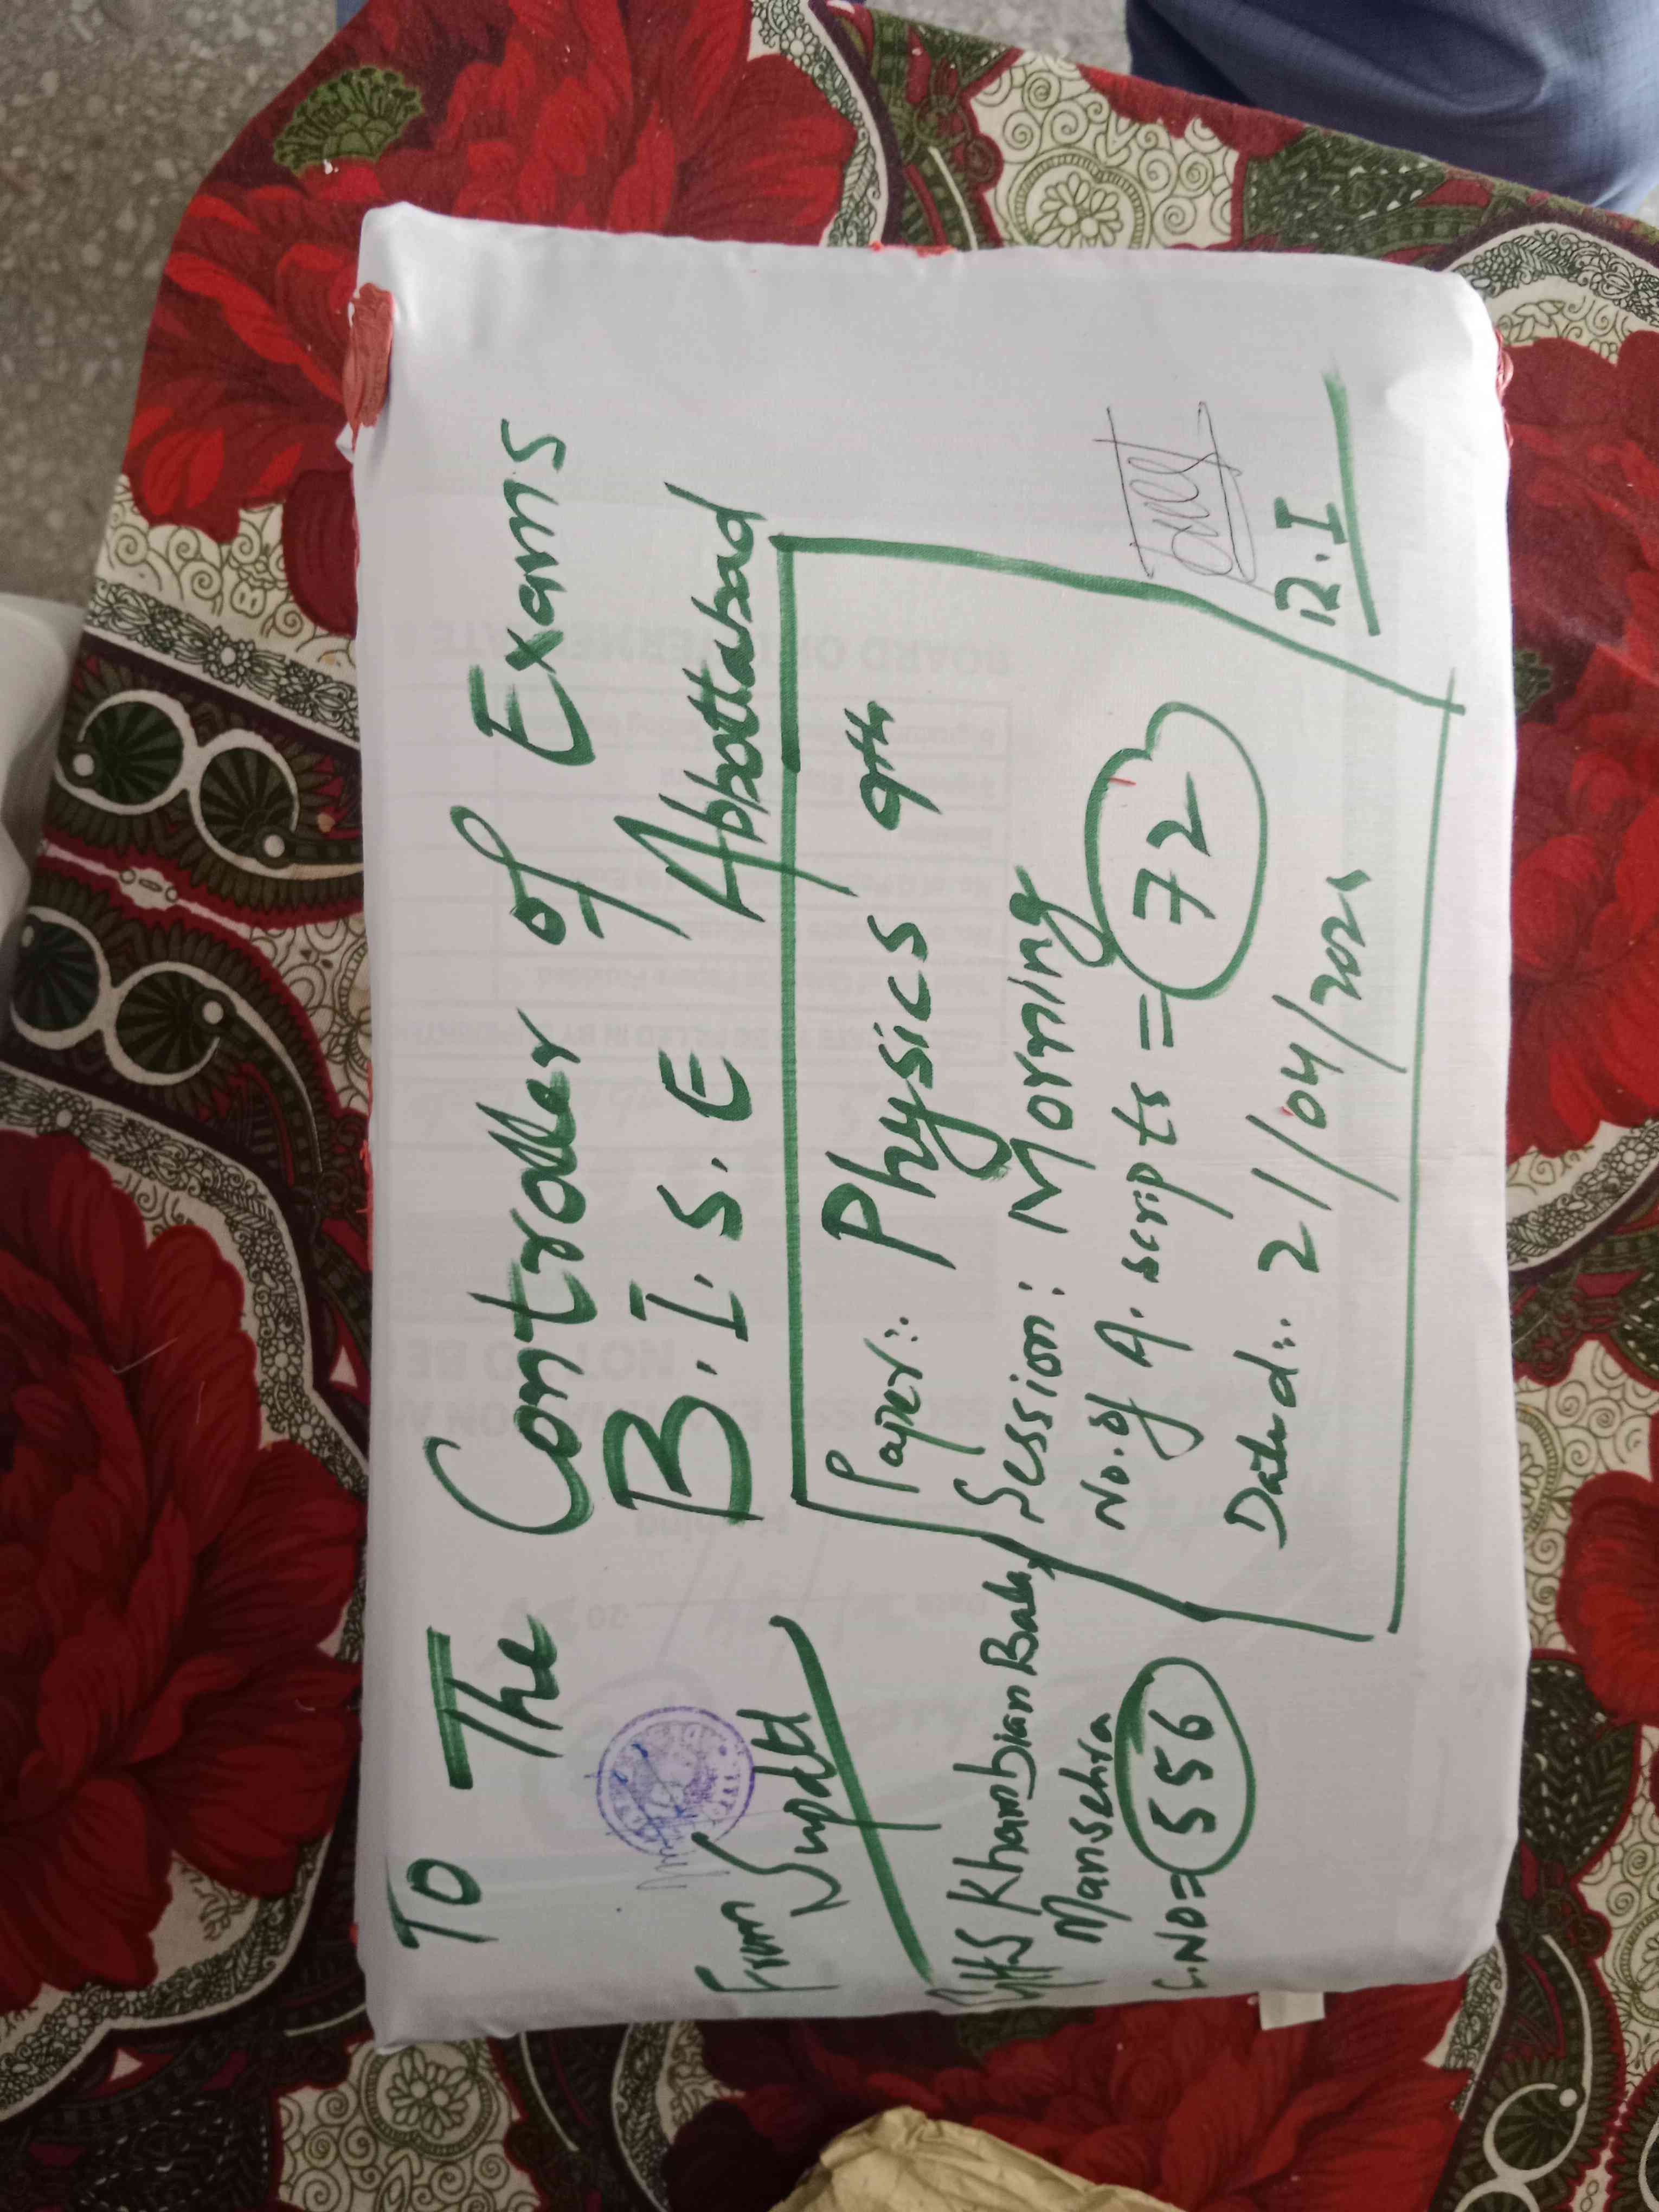 To
The Controller of Exams
B.I.S.E Abbottabad
From
Supdtt
GHS Khambian Bala,
Mansehra
C.NO= 556
Paper:. Physics 9th
Session: Morning
No. of A. scripts = 72
Dated:. 21/04/202
R.I